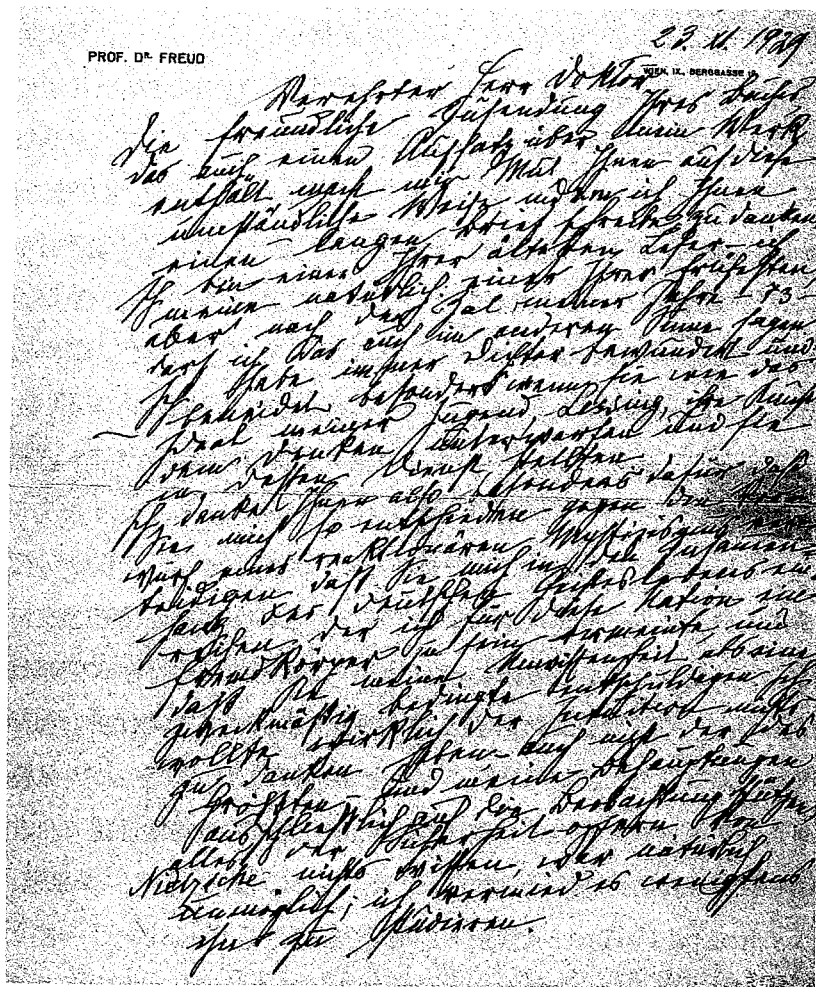 PROF. DR. FREUD
23. XI. 1929
WIEN, IX., BERGGASSE 19.
Verehrter Herr Doktor
Die freundliche Zusendung Ihres Buches
das auch einen Aufsatz über mein Werk
enthält, macht mir Mut Ihnen auf diese
umständliche Weise indem ich Ihnen
einen langen Brief schreibe zu danken.
Ich bin einer Ihrer ältesten Leser – ich
meine natürlich einer Ihrer frühesten,
aber nach der Zal meiner Jahre – 73 –
darf ich das auch im anderen Sinne sagen
Ich habe immer Dichter bewundert und
beneidet, besonders wenn sie wie das
Ideal meiner Jugend, Lessing, ihre Kunst
dem Denken unterwerfen und sie
in dessen Dienst stellten
Ich danke Ihnen also besonders dafür daß
Sie mich so entschieden gegen den Vor
wurf eines reaktionären Mystizismus ver
teidigen daß Sie mich in den Zusammen
hang des deutschen Geisteslebens ein
reihen, der ich für diese Nation ein
Fremdkörper zu sein vermeinte, und
daß Sie meine Unwissenheit als eine
zweckmäßig bedingte entschuldigen Ich
wollte wirklich der Intuition nichts
zu danken haben – auch nicht der des
Größten – und meine Behauptungen
ausschließlich auf die Beobachtung stützen,
alles der Sicherheit opfern. Von
Nietzsche nichts wissen, war natürlich
unmöglich; ich vermied es wenigstens
ihn zu studieren.